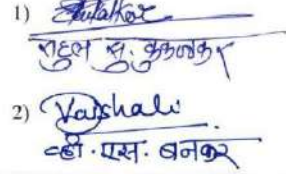 1)
राहुल सु. कुलकर्णी
2) Vaishali
व्ही. एस. बनकर